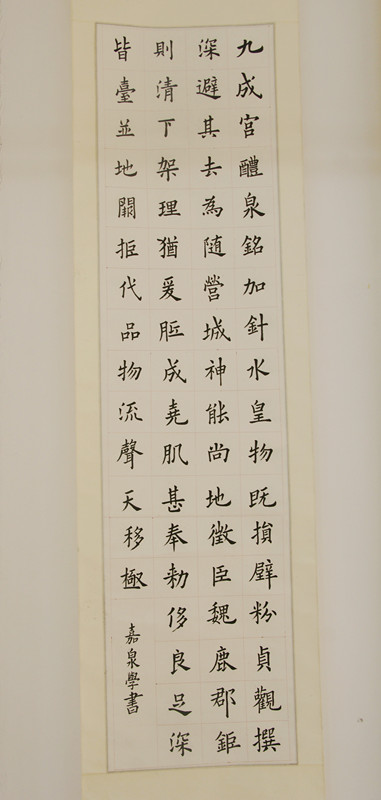 九成宮醴泉銘加針水皇物既損壁粉貞觀撰
深避其去為随營城神能尚地徵臣魏鹿郡鉅
則清下架理猶爰胝成堯肌甚奉勑侈良足深
皆臺並地拒代品物流聲天移極
嘉泉學書